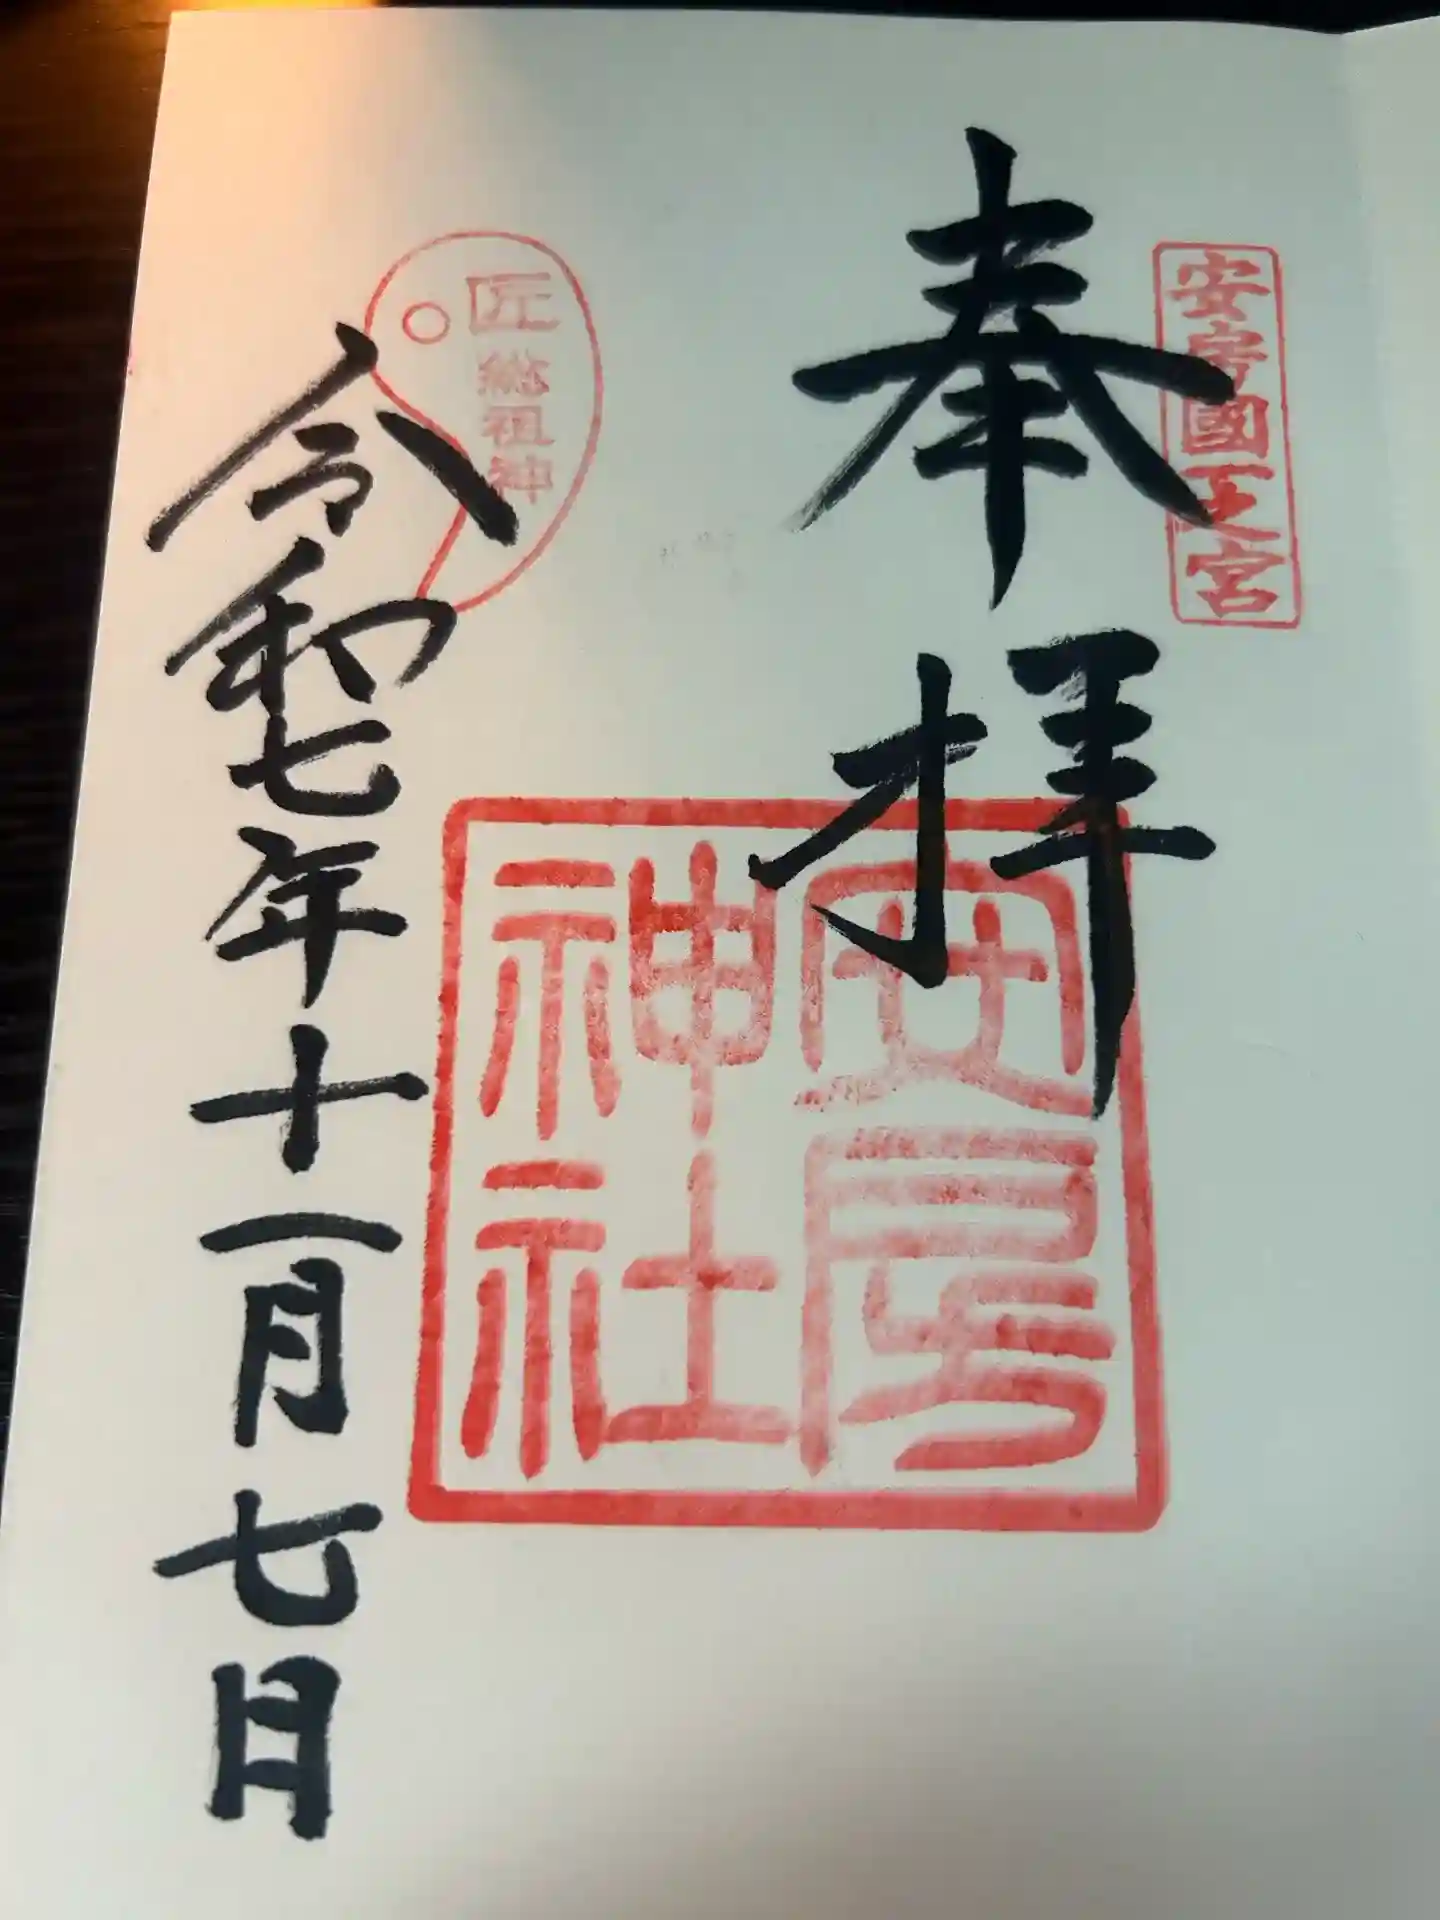 安房國一之宮
奉拝
安房
神社
匠総祖神
令和七年十一月七日